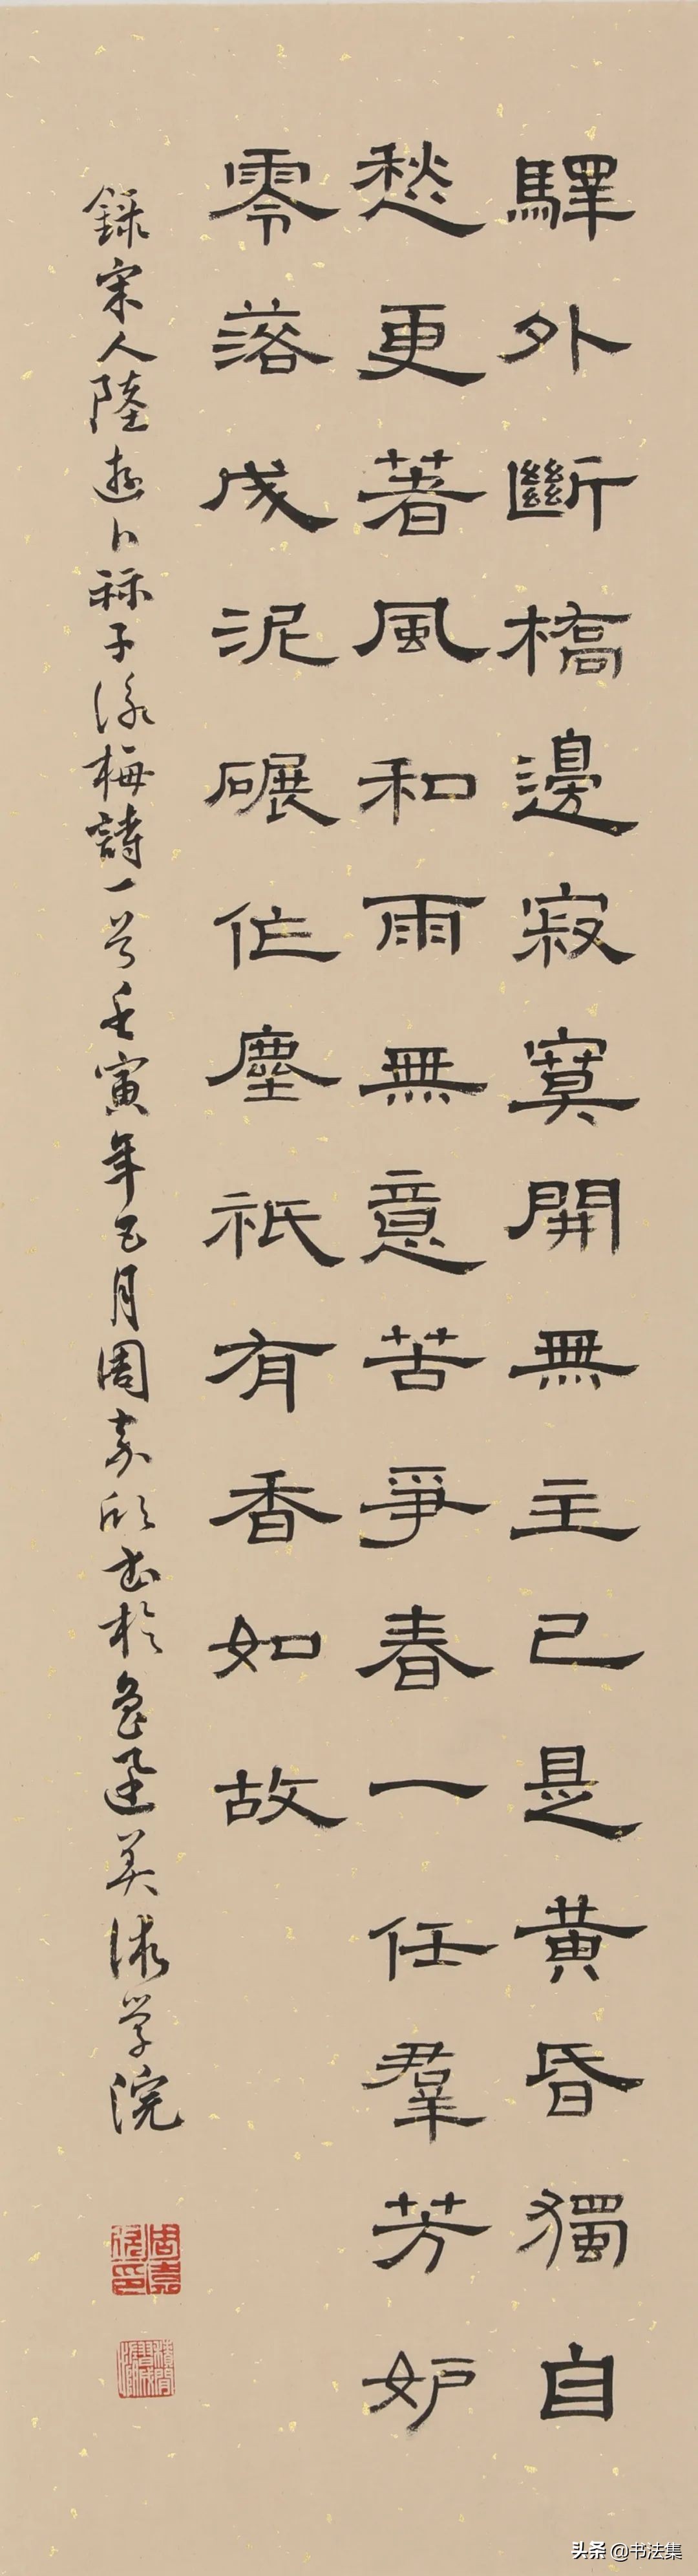 驛外斷橋邊寂寞開無主已是黃昏獨自
愁更著風和雨無意苦爭春一任羣芳妒
零落成泥碾作塵祇有香如故
錄宋人陸游卜祘子詠梅詩一首壬寅年五月周嘉欣書於魯迅美術学院
头条 @书法集